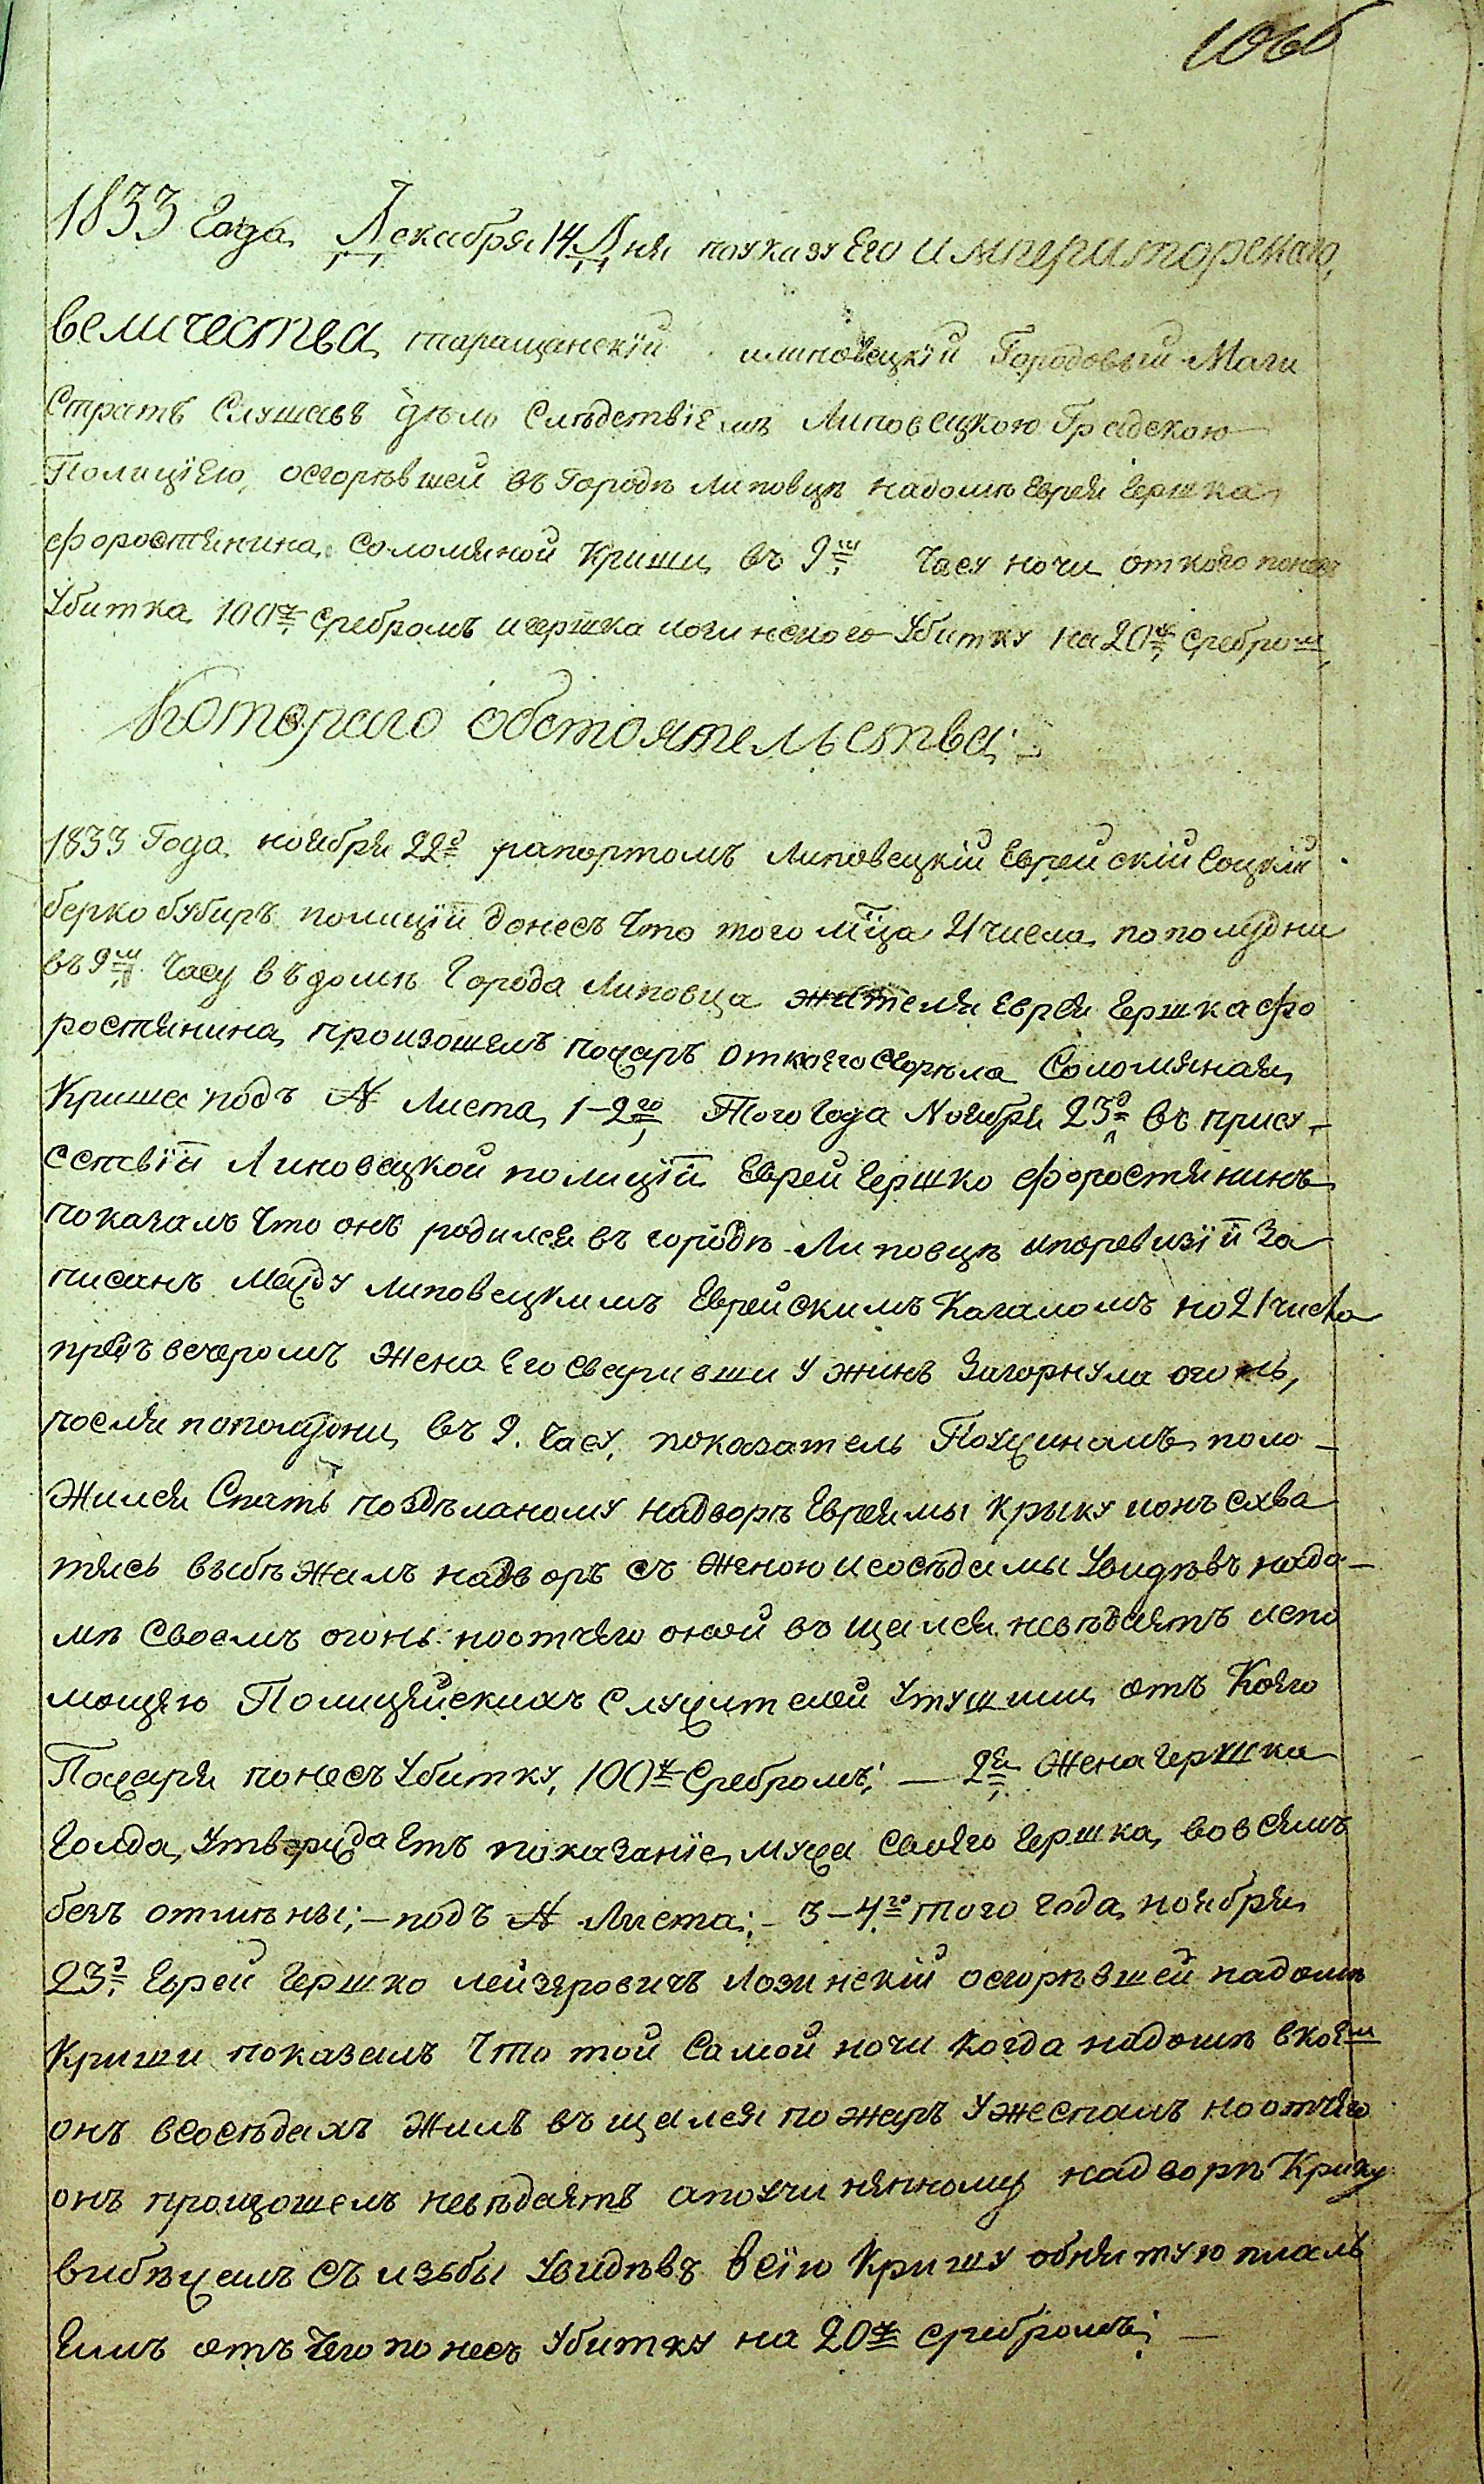 106б
1833 Года Декабря 14 Дня по указу Его императорскаго
величества таращанскій и липовецкій Городовый Маги
Стратъ Слушавъ дѣло Слѣдствіемъ Липовецкою Градскою
Полиціею о сгорѣвшей въ Городѣ Липовцѣ на домѣ еврея гершка
форостянина соломяной криши въ 9ш часу ночи от кого понес
Убитка 100р сребромъ и гершка лозинского Убитку на 20р сребром
Котораго обстоятельства:
1833 Года ноября 22д рапортомъ Липовецкій Еврейскій Соцкій
берко бубиръ полиціи донесъ что того мца 21 числа по полудни
въ 9ш часу въ домѣ Города Липовца жителя еврея гершка фо
ростянина произошелъ пожаръ от коего сгорѣла Соломяная
Криша подъ № Листа 1–2го Того года Ноября 23д въ прису-
сствіи Липовецкой полиціи Еврей гершко форостянинъ
показалъ что онъ родился въ городѣ Липовцѣ и по ревизіи за
писанъ между липовецкимъ Еврейскимъ Кагаломъ но 21 числа
предъ вечеромъ жена его сваривши ужинъ загорнула огонь,
после по полудни въ 9. часу, показатель Поужиналъ поло-
жился Спать по здѣланому на дворѣ Евреямы крыку и онъ схва
тясь выбѣжалъ на дворъ съ женою и сосѣдамы Увидѣвъ на до-
мѣ своемъ огонь но от чего оной въщелся невѣдаетъ и с по
мощею Полицейскихъ служителей утушили отъ Коего
Пожаря понесъ Убитку, 100р Сребромъ; — 2я Жена гершка
Голда, Утверждаетъ показаніе мужа своего гершка во всемъ
безъ отмѣны; – подъ № Листа; – 3–4го того года ноября
23д Еврей гершко лейзеровичъ Лозинскій о сгорѣвшей на домѣ
криши показалъ что той самой ночи когда на домѣ в коем
онъ в сосѣдахъ жилъ въщелся пожаръ уже спалъ но от чего
онъ произошелъ невѣдаетъ а по учиненному на дворѣ Крику
вибѣжелъ съ избы Увидѣвъ всію кришу обнятую плам
емъ отъ чего понесъ Убитку на 20р сребромъ; —